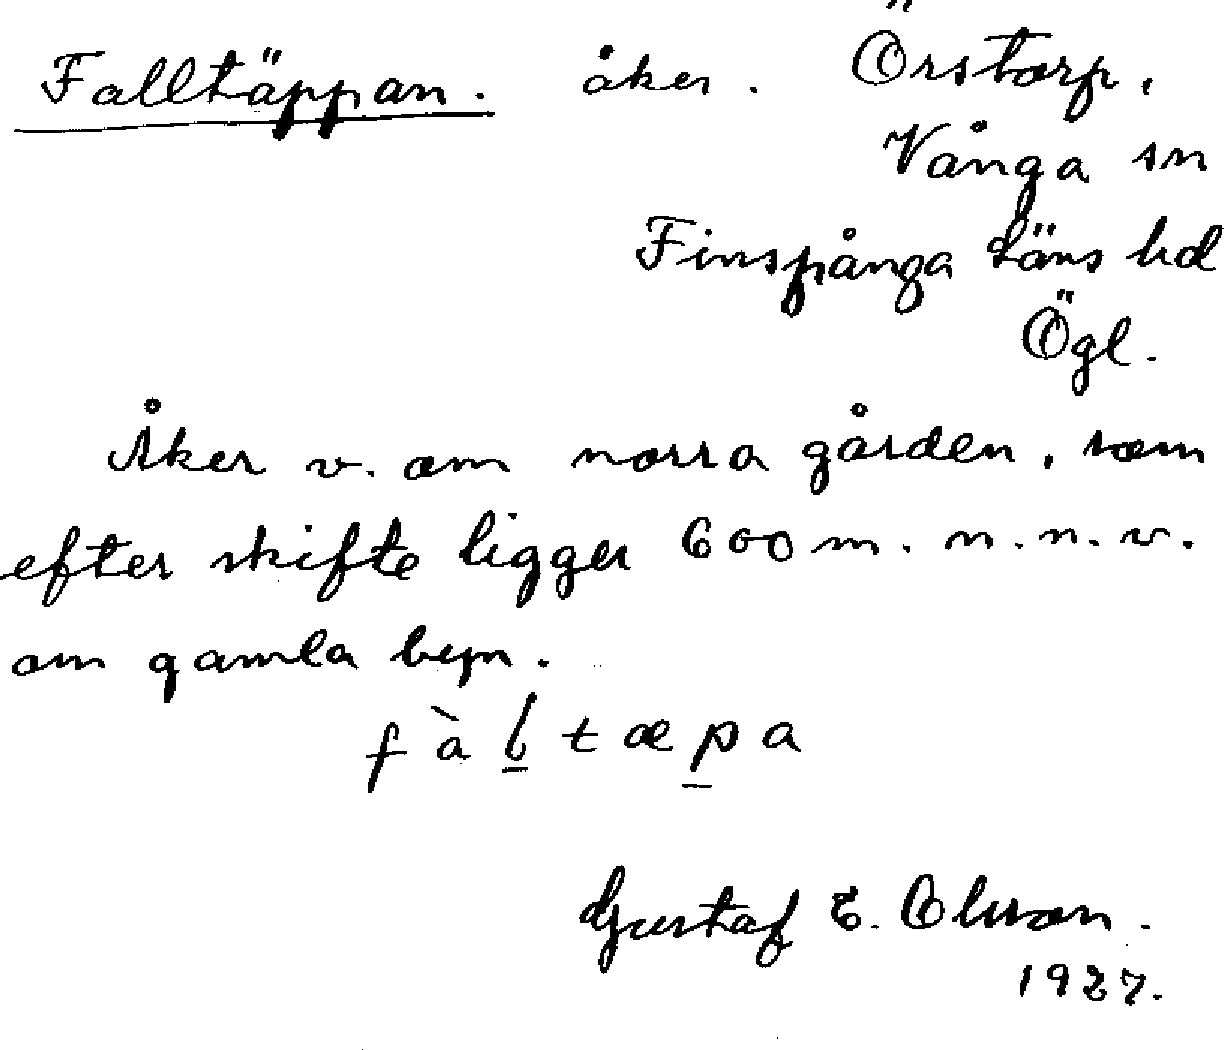 Falltäppan. åker. Örstorp,
Vånga sn
Finspånga Läns hd
Ögl.
Åker v. om norra gården, som
efter skifte ligger 600 m. n. n. v.
om gamla byn.
Gustaf E. Olsson.
1927.